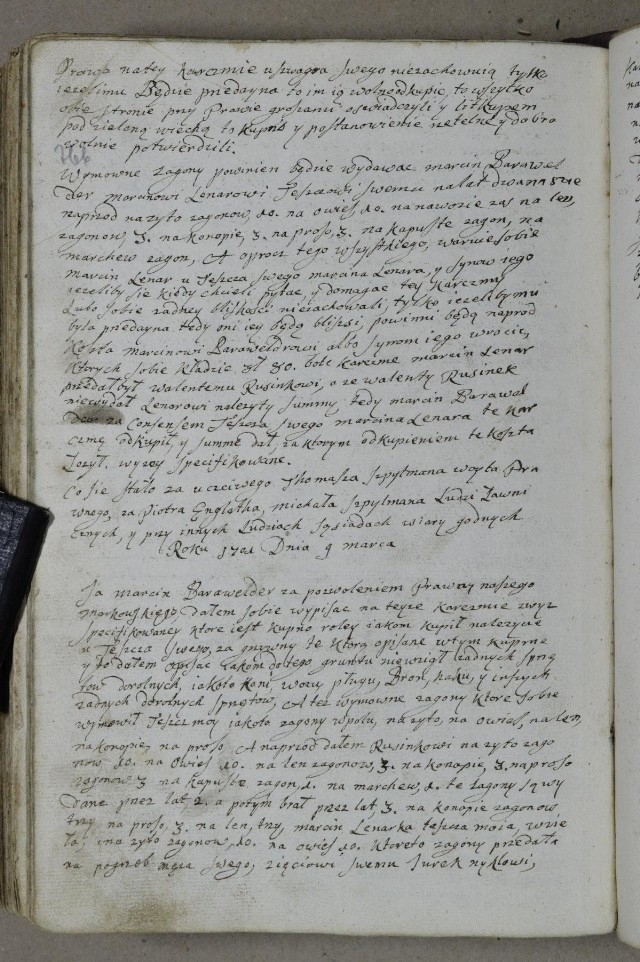 Prawa na tey karczmie u szwagra swego niezachowuią tylko
iezelimu Będzie przedayna to im ią wolno odkupic, to wszytko
obie stronie przy Prawie groszami oswiadczyli y litkupem
pod zieloną wiechą to kupno y postanowienie rzetelne y dobro
wolnie potwierdzili.
Wymowne zagony powinien będzie wydawac marcin Barawel
der marcinowi Lenarowi Teszczowi swemu na lat dwanascie
naprzod na zyto zagonow, 10. na owies, 10. na nawozie zas na len,
zagonow, 3. na konopie, 3. na proso, 3. na kapuste zagon, na
marchew zagon, A oprocz tego wszystkiego, waruie sobie
marcin Lenar u Teszcza swego marcina Lenara, y synow iego
iezeliby sie kiedy chcieli pytac y domagac tey karczmy
Lubo sobie zadney bliskosci niezachowali, tylko iezeliby mu
była przedayna tedy oni iey będą blizsi, powinni będą naprod
koszta marcinowi Baraweldrowi albo synom iego wrocic,
ktorych sobie kładzie zł 80. bo te karczme marcin Lenar
przedał był walentemu Rusinkowi, a ze walenty Rusinek
niewydał Lenarowi nalezyty summy, tedy marcin Barawel
der za Consensem Teszcza swego marcina Lenara te kar
czmę odkupił, y summe dał, za ktorym odkupieniem te koszta
łozył. wyzey specifikowane.
Co sie stało za uczciwego Thomasza Szpylmana woyta Pra
wnego, za Piotra Englotka, michała Szpylmana Ludzi Ławni
cznych, y przy innych Ludziach Sąsiadach wiary godnych
Roku 1701 Dnia 9 marca
Ja marcin Barawelder za pozwoleniem Prawa naszego
markowskiego, dałem sobie wypisac na teyze karczmie zwyz
specifikowaney ktore iest kupno roley iakom kupił nalezycie
u Teszcza swego, za grzywny te ktorą opisane w tym kupnie
y to dałem opisac żakom do tego gruntu niewziął zadnych sprzę
tow dorolnych, iako to koni, wozu pługu, Bron, haku, y inszych
zadnych dorolnych sprzętow, A też wymowne zagony ktore sobie
wymowił Teszcz moy iako to zagony w polu, na zyto, na owies, na len,
na konopie, na proso. A naprzod dałem Rusinkowi na zyto zago
now 10. na owies 10. na len zagonow, 3. na konopie, 3. na proso
zagonow 3 na kapuste zagon, 1. na marchew, 1. te zagony są wy
dane przez lat 2. a potym brał przez lat, 3. na konopie zagonow
trzy na proso, 3. na len, trzy, marcin Lenarka teszcza moia, wzie
ła, na zyto zagonow, 10. na owies 10. ktore to zagony przedała
na pogrzeb męza swego, zięciowi swemu Jurek nyklowi,